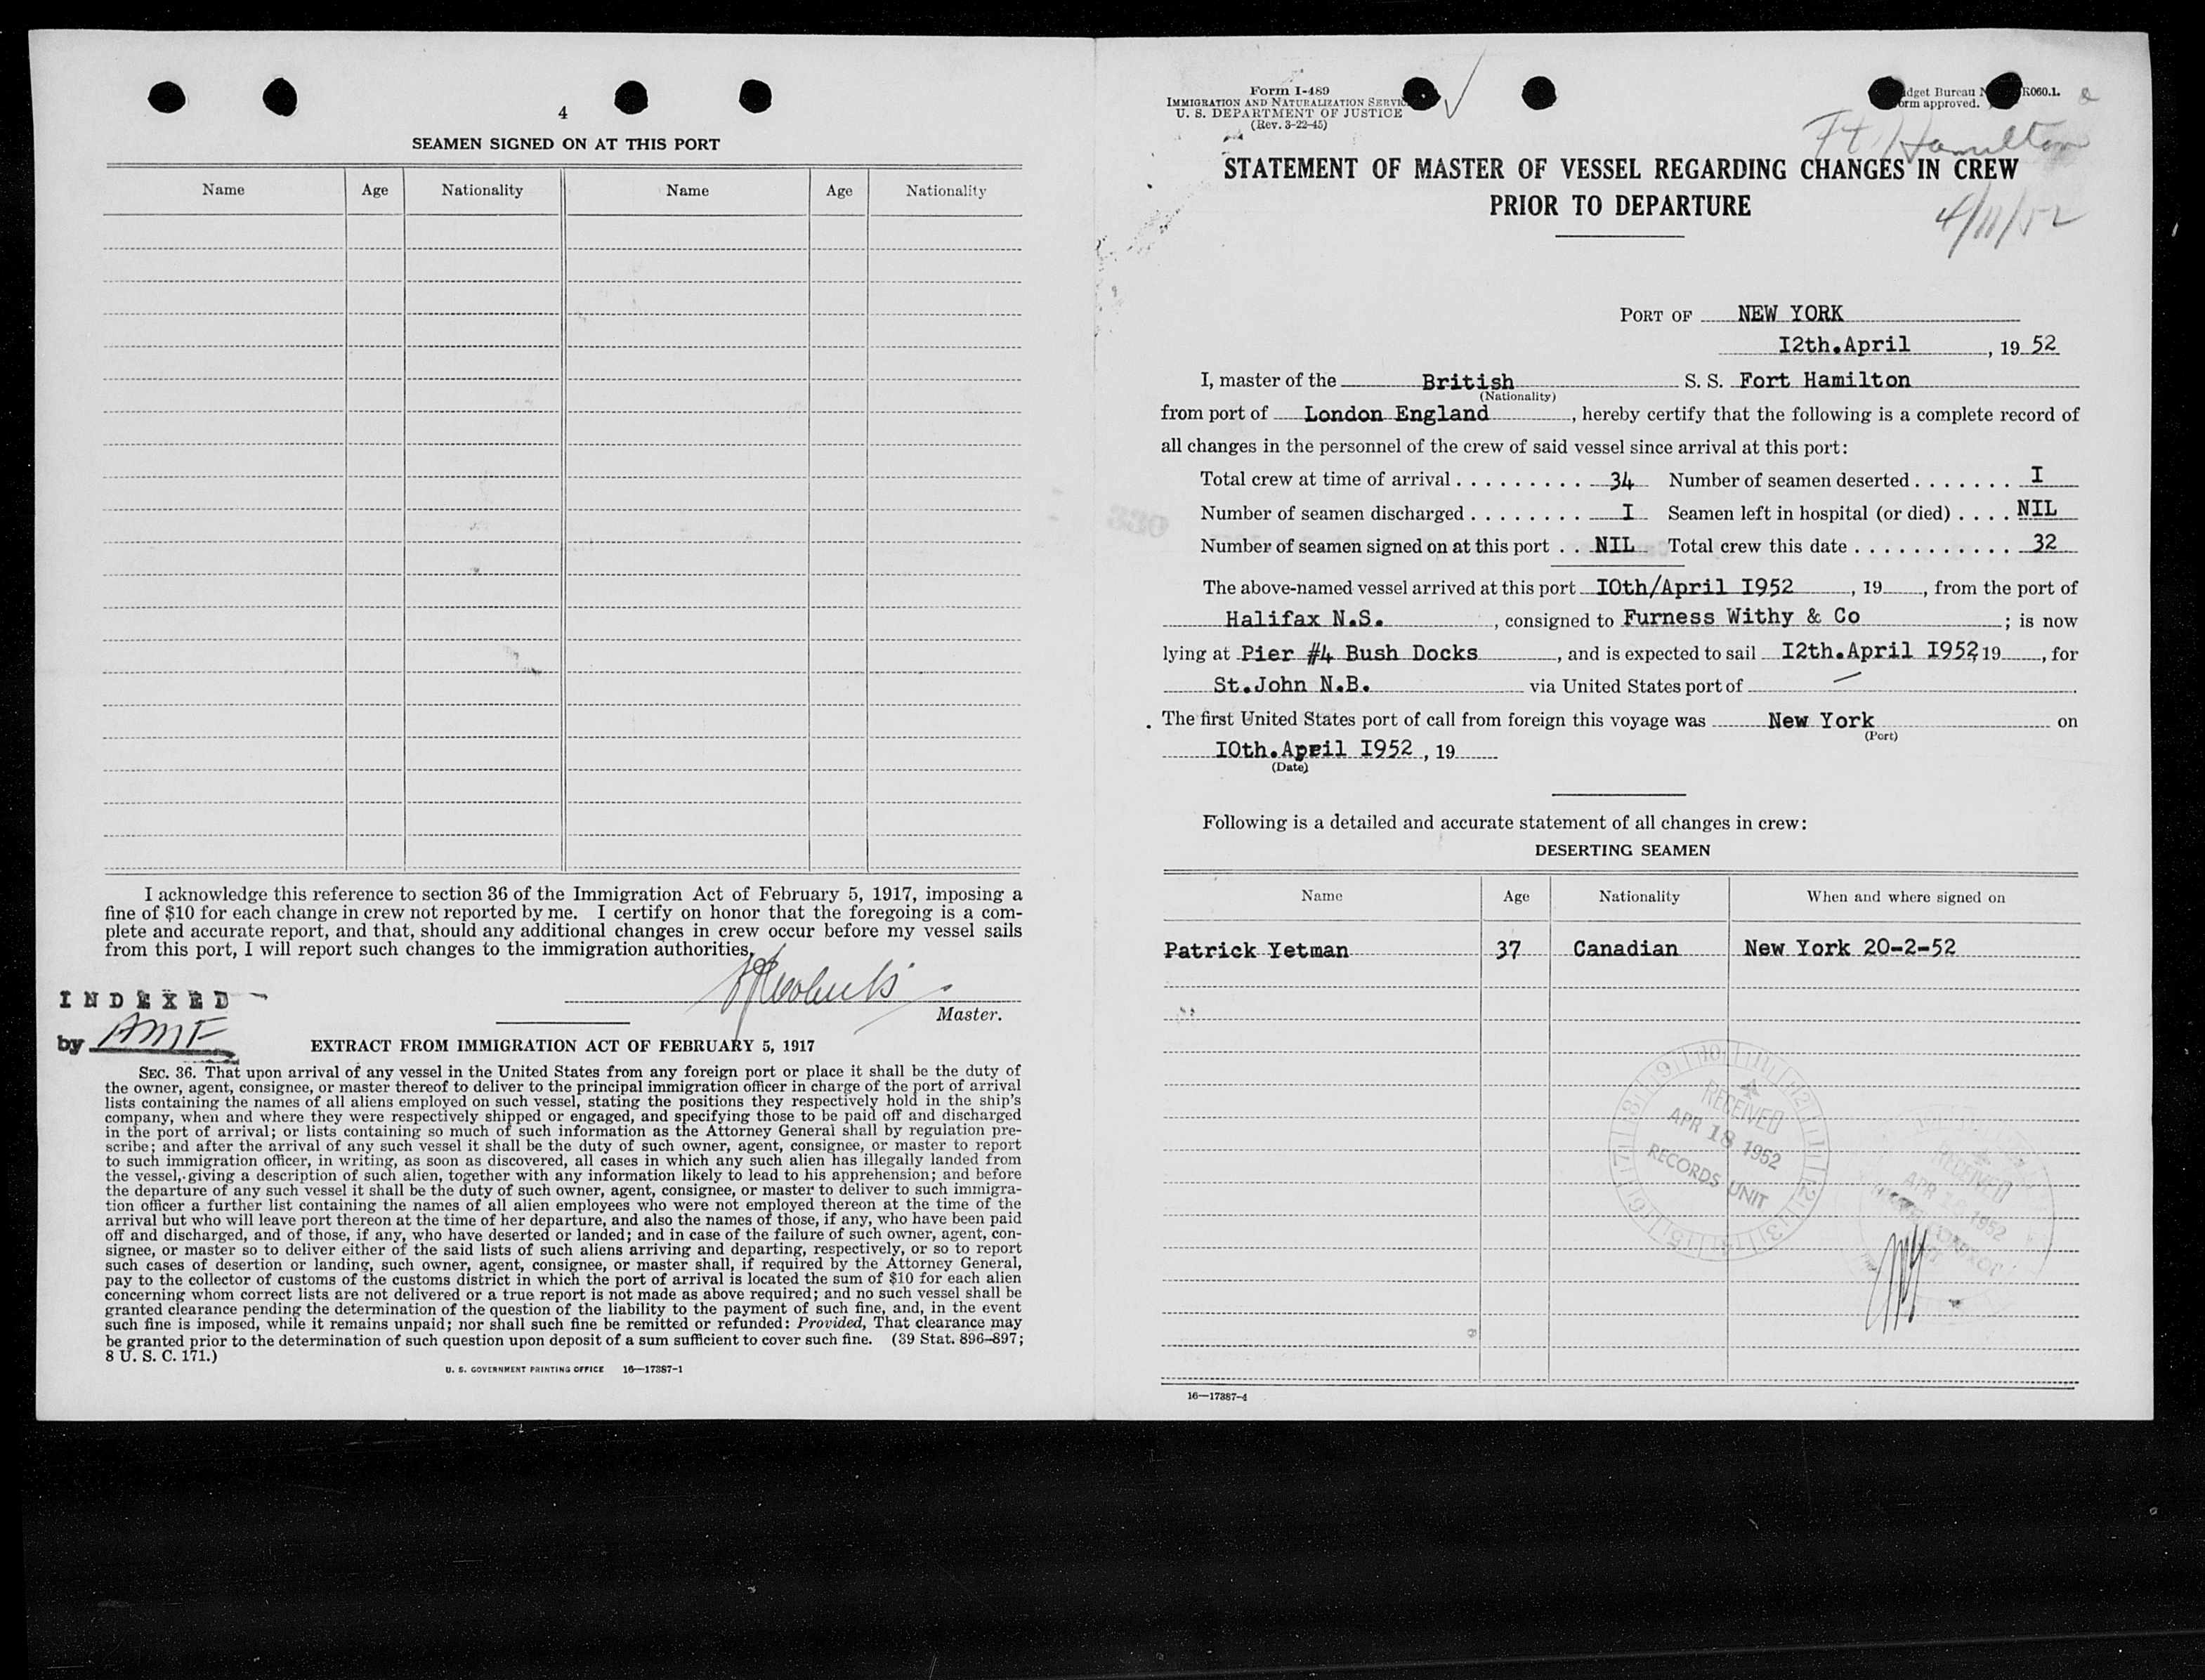 4
SEAMEN SIGNED ON AT THIS PORT
Name Age Nationality Name Age Nationality
I acknowledge this reference to section 36 of the Immigration Act of February 5, 1917, imposing a
fine of $10 for each change in crew not reported by me. I certify on honor that the foregoing is a com-
plete and accurate report, and that, should any additional changes in crew occur before my vessel sails
from this port, I will report such changes to the immigration authorities.
Master.
INDEXED
by AMF
EXTRACT FROM IMMIGRATION ACT OF FEBRUARY 5, 1917
SEC. 36. That upon arrival of any vessel in the United States from any foreign port or place it shall be the duty of
the owner, agent, consignee, or master thereof to deliver to the principal immigration officer in charge of the port of arrival
lists containing the names of all aliens employed on such vessel, stating the positions they respectively hold in the ship's
company, when and where they were respectively shipped or engaged, and specifying those to be paid off and discharged
in the port of arrival; or lists containing so much of such information as the Attorney General shall by regulation pre-
scribe; and after the arrival of any such vessel it shall be the duty of such owner, agent, consignee, or master to report
to such immigration officer, in writing, as soon as discovered, all cases in which any such alien has illegally landed from
the vessel, giving a description of such alien, together with any information likely to lead to his apprehension; and before
the departure of any such vessel it shall be the duty of such owner, agent, consignee, or master to deliver to such immigra-
tion officer a further list containing the names of all alien employees who were not employed thereon at the time of the
arrival but who will leave port thereon at the time of her departure, and also the names of those, if any, who have been paid
off and discharged, and of those, if any, who have deserted or landed; and in case of the failure of such owner, agent, con-
signee, or master so to deliver either of the said lists of such aliens arriving and departing, respectively, or so to report
such cases of desertion or landing, such owner, agent, consignee, or master shall, if required by the Attorney General,
pay to the collector of customs of the customs district in which the port of arrival is located the sum of $10 for each alien
concerning whom correct lists are not delivered or a true report is not made as above required; and no such vessel shall be
granted clearance pending the determination of the question of the liability to the payment of such fine, and, in the event
such fine is imposed, while it remains unpaid; nor shall such fine be remitted or refunded: Provided, That clearance may
be granted prior to the determination of such question upon deposit of a sum sufficient to cover such fine. (39 Stat. 896–897;
8 U. S. C. 171.)
U. S. GOVERNMENT PRINTING OFFICE 16—17387-1
Form I-489
IMMIGRATION AND NATURALIZATION
U. S. DEPARTMENT OF JUSTICE
(Rev. 3-22-45)
Bureau R060.1.
approved.
Ft Hamilton
STATEMENT OF MASTER OF VESSEL REGARDING CHANGES IN CREW
PRIOR TO DEPARTURE
4/11/52
PORT OF NEW YORK
I2th.April, 19 52
I, master of the British S. S. Fort Hamilton
(Nationality)
from port of London England, hereby certify that the following is a complete record of
all changes in the personnel of the crew of said vessel since arrival at this port:
Total crew at time of arrival 34 Number of seamen deserted I
Number of seamen discharged I Seamen left in hospital (or died) NIL
Number of seamen signed on at this port NIL Total crew this date 32
The above-named vessel arrived at this port IOth/April I952, 19, from the port of
Halifax N.S., consigned to Furness Withy & Co; is now
lying at Pier #4 Bush Docks, and is expected to sail I2th.April I952, 19, for
St.John N.B. via United States port of —.
The first United States port of call from foreign this voyage was New York on
(Port)
IOth.April I952, 19
(Date)
Following is a detailed and accurate statement of all changes in crew:
DESERTING SEAMEN
Name Age Nationality When and where signed on
Patrick Yetman 37 Canadian New York 20-2-52
RECEIVED
APR 18 1952
RECORDS UNIT
RECEIVED
APR 1952
16—17387-4